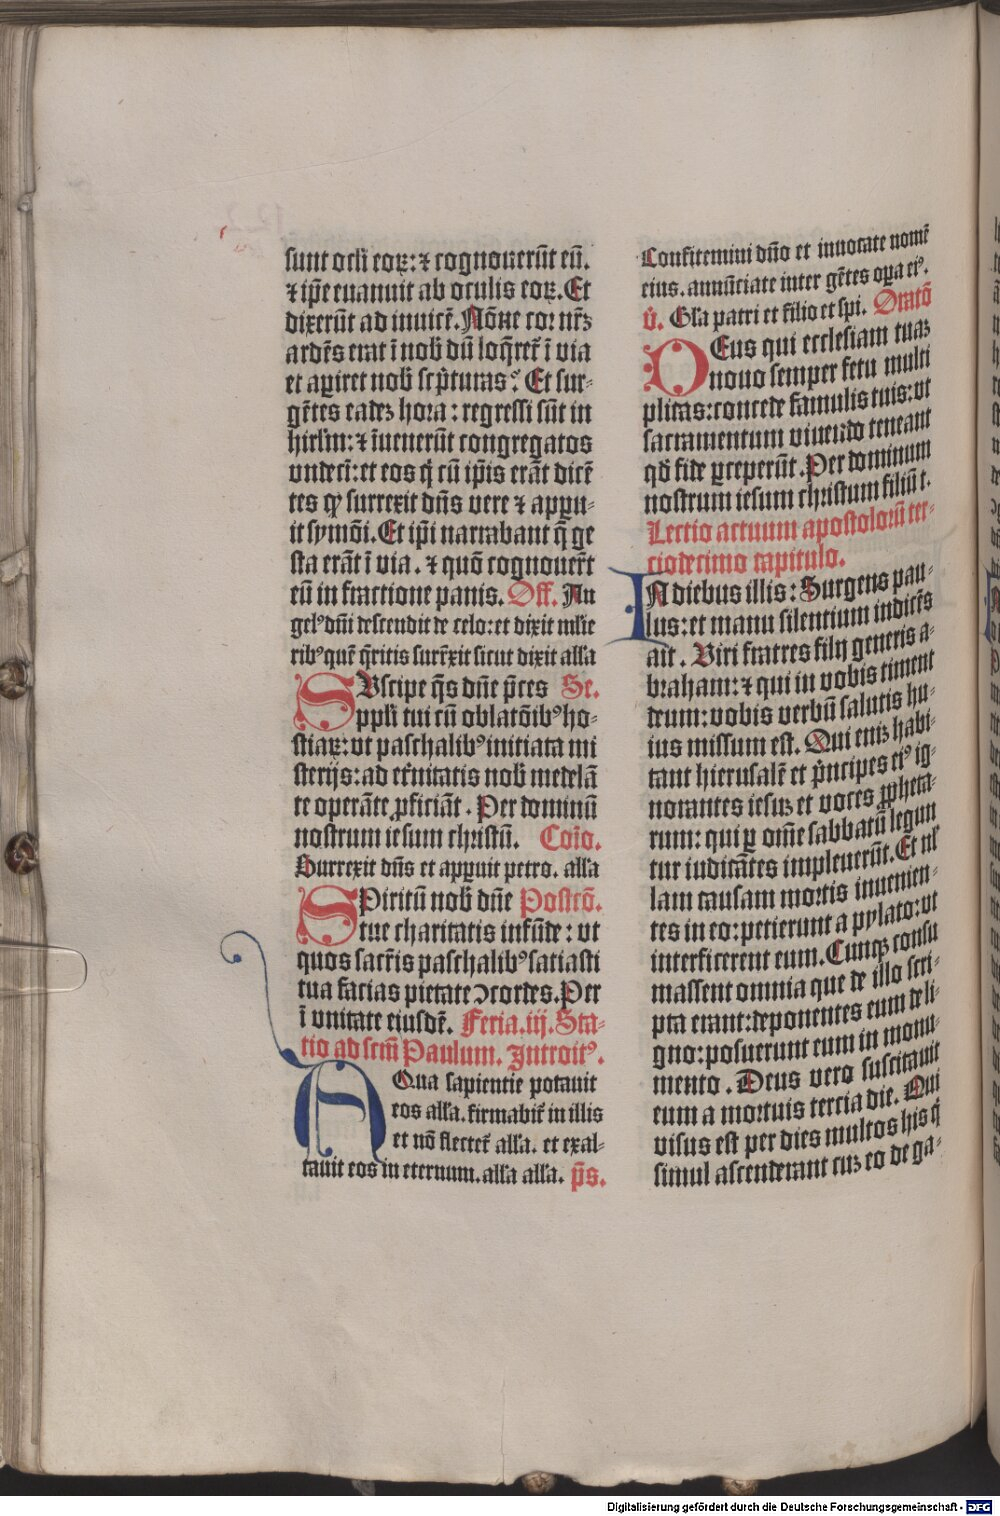 sunt ocl'i eoꝝ: ⁊ cognouerūt eū.
⁊ ip̄e euanuit ab oculis eoꝝ. Et
dixerūt ad inuicē. Nōne cor nr̄ꝫ
ardēs erat ī nob̄ dū loq̄ret᷑ ī via
et aꝑiret nob̄ sc̄pturas? Et sur-
gētes eadeꝫ hora: regressi sūt in
hirl'm: ⁊ īuenerūt congregatos
vndeci᷑: et eos q̄ cū ip̄is erāt dicē
tes ꝙ surrexit dn̄s vere ⁊ apꝑu-
it symōi. Et ip̄i narrabant q̄ ge
sta erāt ī via. ⁊ quō cognouer̄t
eū in fractione panis. Off. An
gelꝰ dn̄i descendit de celo: et dixit mlie
ribꝰ quē q̄ritis surr̄xit sicut dixit all'a
SVscipe q̄s dn̄e p̄ces Se.
ppl'i tui cū oblatōibꝰ ho-
stiaꝝ: vt paschalibꝰ initiata mi
sterijs: ad et᷑nitatis nob̄ medelā
te operāte ꝓficiāt. Per dominū
nostrum iesum christū. Coīo.
Surrexit dn̄s et apꝑuit petro. all'a
SPiritū nob̄ dn̄e Postcō.
tue charitatis infūde: vt
quos sacr̄is paschalibꝰ satiasti
tua facias pietate ɔcordes. Per
ī vnitate eiusdē. Feria. iij. Sta-
tio ad scm̄ Paulum. Introitꝰ.
AQua sapientie potauit
eos all'a. firmabit᷑ in illis
et nō flectet᷑ all'a. et exal-
tauit eos in eternum. all'a all'a. p̄s.
Confitemini dn̄o et inuocate nomē
eius. annūciate inter gētes oꝑa eiꝰ.
v̓. Gl'a patri et filio et spi. Oratō
DEus qui ecclesiam tuaꝫ
nouo semper fetu multi
plicas: concede famulis tuis: vt
sacramentum viuendo teneant
qd̄ fide ꝑceperūt. Per dominum
nostrum iesum christum filiū t.
Lectio actuum apostolorū ter-
ciodecimo capitulo.
IN diebus illis: Surgens pau-
lus: et manu silentium indicēs
ait. Viri fratres filij generis a-
braham: ⁊ qui in vobis timent
deum: vobis verbū salutis hu-
ius missum est. Qui eniꝫ habi-
tant hierusalē et p̄ncipes eiꝰ ig-
norantes iesuꝫ et voces ꝓpheta-
rum: qui ꝑ om̄e sabbatū legun
tur iudicātes impleuerūt. Et nl'
lam causam mortis inuenien-
tes in eo: petierunt a pylato: vt
interficerent eum. Cumqꝫ consu
massent omnia que de illo scri-
pta erant: deponentes eum de li-
gno: posuerunt eum in monu-
mento. Deus vero suscitauit
eum a mortuis tercia die. Qui
visus est per dies multos his q̄
simul ascenderant cuꝫ eo de ga-
Digitalisierung gefördert durch die Deutsche Forschungsgemeinschaft - DFG